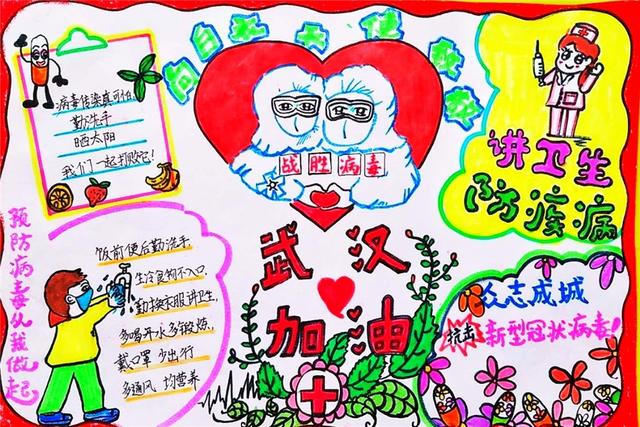 向白衣天使致敬
病毒传染真可怕,
勤洗手
晒太阳
我们一起打败它!
战胜病毒
讲卫生
防疫病
预防病毒从我做起
饭前便后勤洗手
生冷食物不入口
勤换衣服讲卫生
多喝开水多锻炼
戴口罩 少出行
多通风 均营养
武汉
加油
众志成城
抗击 新型冠状病毒!